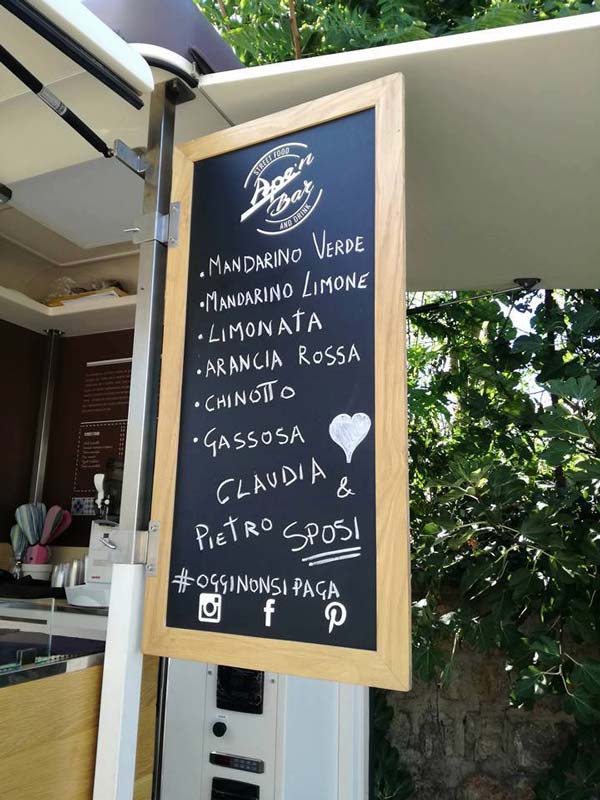 STREET FOOD
Ape'n
Bar
AND DRINK
• MANDARINO VERDE
• MANDARINO LIMONE
• LIMONATA
• ARANCIA ROSSA
• CHINOTTO
• GASSOSA
CLAUDIA &
PIETRO SPOSI
#OGGINONSIPAGA